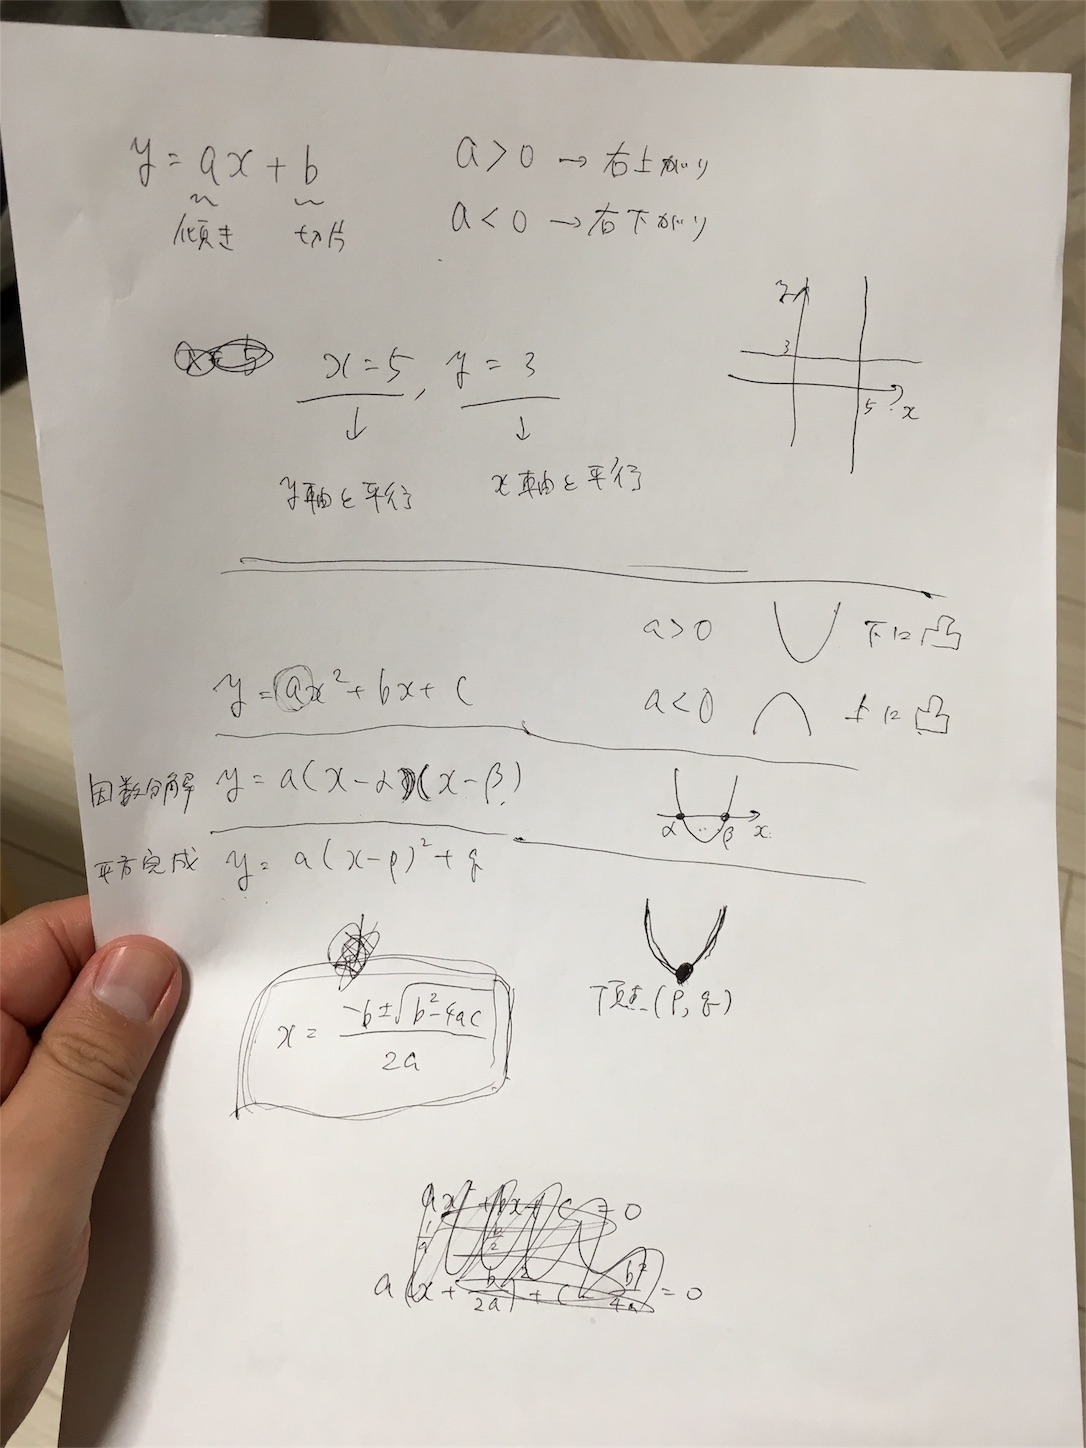 y = ax + b
傾き 切片
a > 0 → 右上がり
a < 0 → 右下がり
x = 5, y = 3
↓ ↓
y軸と平行 x軸と平行
y
3
5 x
a > 0 下に凸
a < 0 上に凸
y = ax² + bx + c
因数分解 y = a(x-α)(x-β)
α β x
平方完成 y = a(x-p)² + q
頂点(p, q)
x = (-b±√(b²-4ac))/2a
ax² + bx + c = 0
a(x + b/2a)² + c - b²/4a = 0